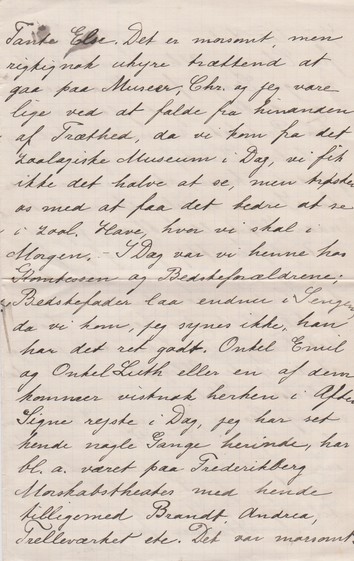 Tante Else. Det er morsomt, men
rigtignok uhyre trættend at
gaa paa Museer, Chr. og jeg vare
lige ved at falde fra hinanden
af Træthed, da vi kom fra det
zoologiske Museum i Dag, vi fik
ikke det halve at se, men trøster
os med at faa det bedre at se
i zool. Have, hvor vi skal i
Morgen. - I Dag var vi henne hos
Komtessen og Bedsteforældrene;
Bedstefader laa endnu i Sengen
da vi kom, jeg synes ikke, han
har det ret godt. Onkel Emil
og Onkel Luth eller en af dem
kommer vistnok herhen i Aften
Signe rejste i Dag, jeg har set
hende nogle Gange herinde, har
bl. a. været paa Frederiksberg
Morskabstheater med hende
tilligemed Brandt, Andrea,
Trelleværket etc. Det var morsomt.